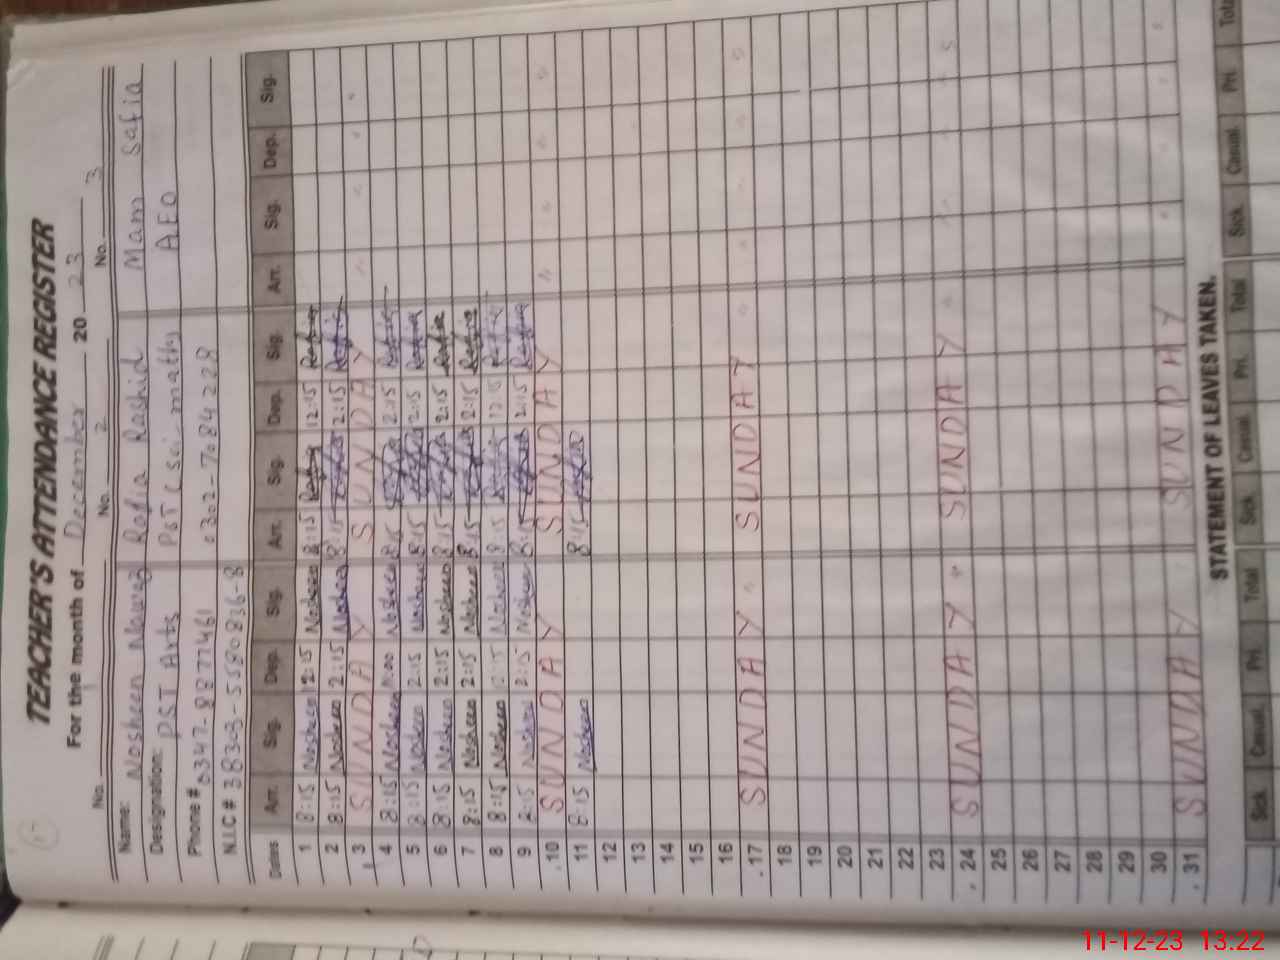 TEACHER'S ATTENDANCE REGISTER
For the month of December 20 23
No. No. 2 No. 3
Name: Nosheen Nawaz Rafia Rashid Mam Safia
Designation: PST Arts PST (Sci-math) AEO
Phone # 0347-8877461 0302-7084228
N.I.C # 38303-5580836-8
Dates Arr. Sig. Dep. Sig. Arr. Sig. Dep. Sig. Arr. Sig. Dep. Sig.
1 8:15 Nosheen 12:15 Nosheen 8:15 Rafia 12:15 Rafia
2 8:15 Nosheen 2:15 Nosheen 8:15 2:15 Rafia
3 SUNDAY SUNDAY
4 8:15 Nosheen Nosheen 8:15 2:15 Rafia
5 8:15 Nosheen 2:15 Nosheen 8:15 2:15 Rafia
6 8:15 Nosheen 2:15 Nosheen 8:15 2:15 Rafia
7 8:15 Nosheen 2:15 Nosheen 8:15 2:15 Rafia
8 8:15 Nosheen 12:15 Nosheen 8:15 12:15 Rafia
9 8:15 Nosheen 2:15 Nosheen 8:15 2:15 Rafia
10 SUNDAY SUNDAY
11 8:15 Nosheen 8:15
12
13
14
15
16
17 SUNDAY SUNDAY
18
19
20
21
22
23
24 SUNDAY SUNDAY
25
26
27
28
29
30
31 SUNDAY SUNDAY
STATEMENT OF LEAVES TAKEN.
Sick Casual Pri. Total Sick Casual Pri. Total Sick Casual Pri. Total
11-12-23 13.22